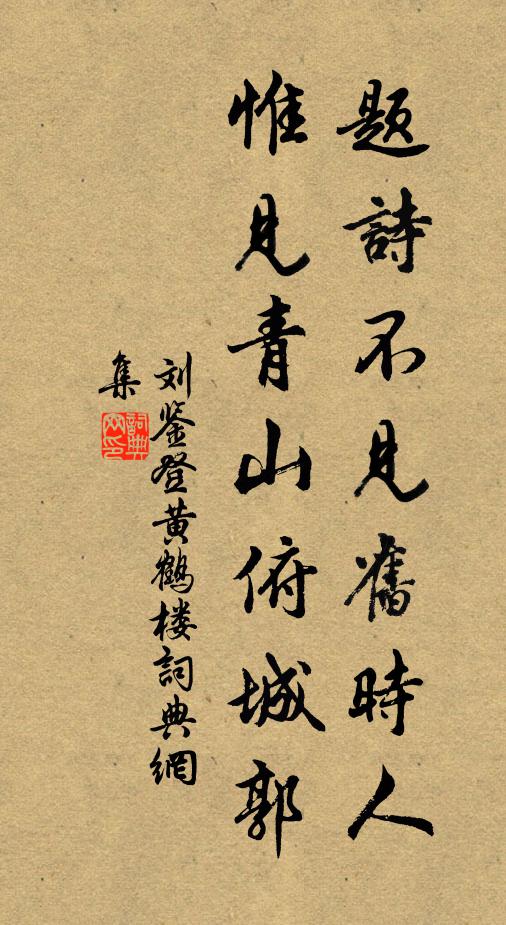 題詩不見舊時人
惟見青山俯城郭
刘鉴登黄鶴楼詞典網
集
詞典
网印